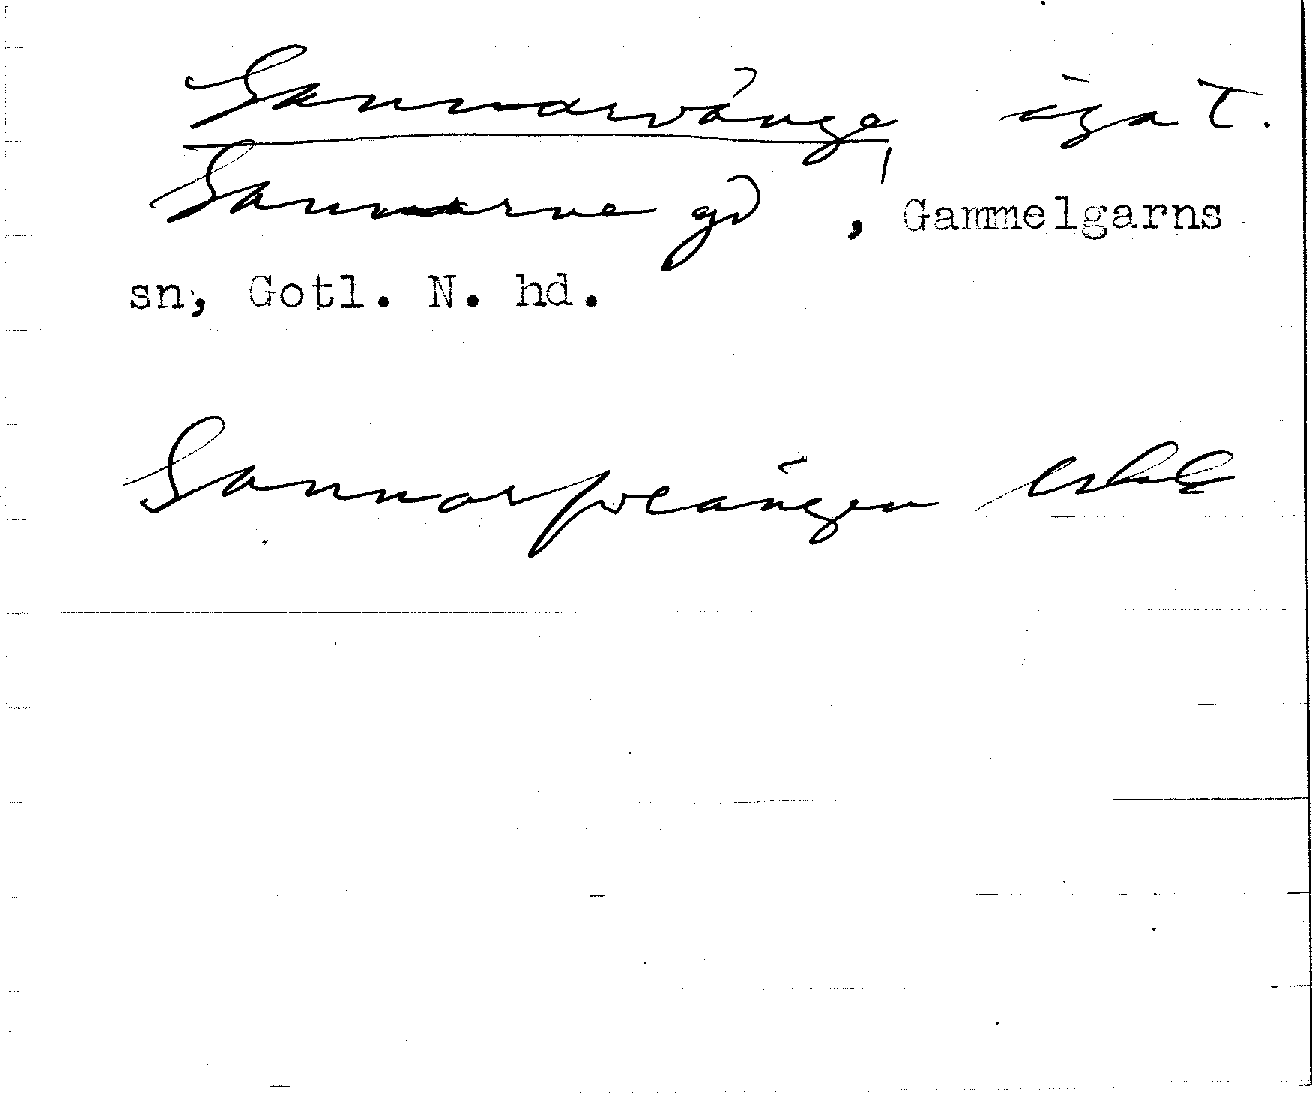 Sannarvänge äga t.
Sannarve gd, Gammelgarns
sn, Gotl. N. hd.
Sannarfveängen